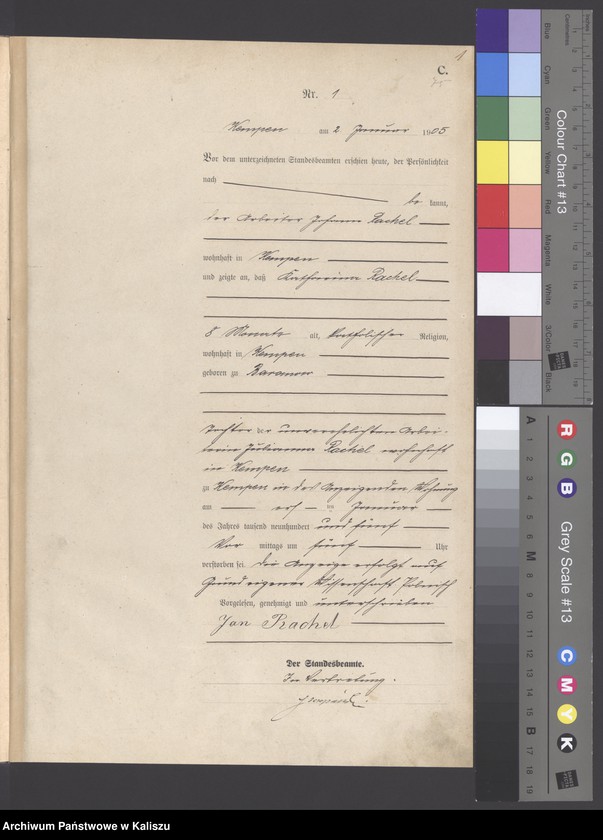 1
C.
Nr. 1
Kempen am 2 Januar 1905
Vor dem unterzeichneten Standesbeamten erschien heute, der Persönlichkeit
nach be kannt,
der Arbeiter Johann Rachel
wohnhaft in Kempen
und zeigte an, daß Katharina Rachel
8 Monate alt, katholischer Religion,
wohnhaft in Kempen
geboren zu Baranow
Tochter der unverehelichten Arbei-
terin Julianna Rachel wohnhaft
in Kempen
zu Kempen in des Anzeigenden Wohnung
am ersten Januar
des Jahres tausend neunhundert und fünf
Vor mittags um fünf Uhr
verstorben sei. Die Anzeige erfolgt auf
Grund eigener Wissenschaft Polnisch
Vorgelesen, genehmigt und unterschrieben
Jan Rachel
Der Standesbeamte.
In Vertretung.
Colour Chart #13
Blue
Cyan
Green
Yellow
Red
Magenta
White
3/Color
Black
Grey Scale #13
R
G
B
C
M
Y
K
A 1 2 3 4 5 6 M 8 9 10 11 12 13 14 15 B 17 18 19
Archiwum Państwowe w Kaliszu